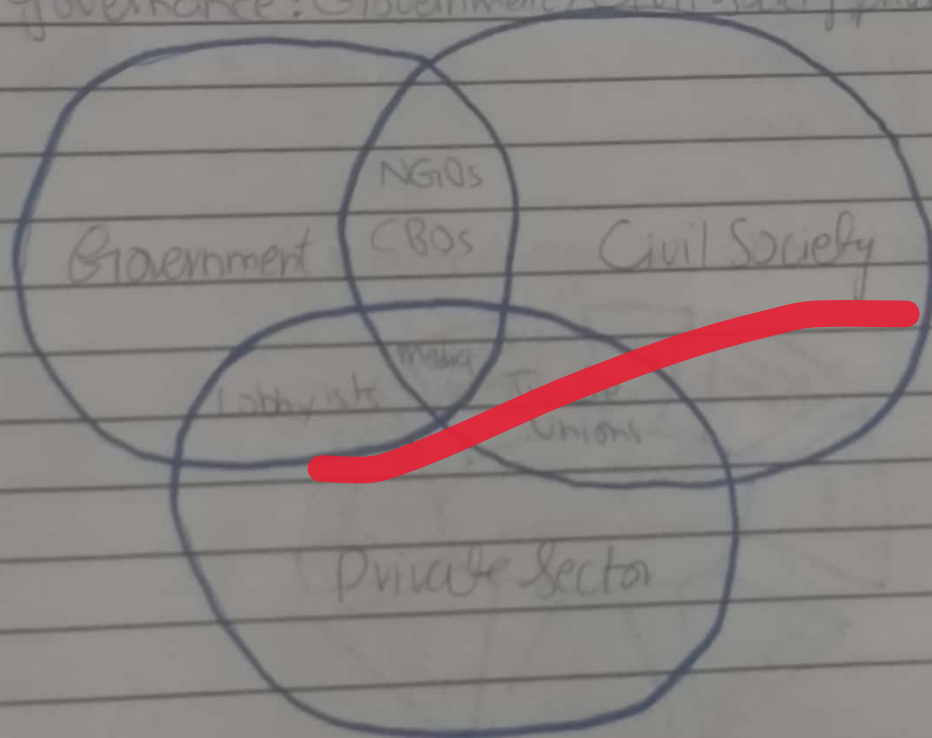 governance: Government, Civil Society,
NGOs
CBOs
Government
Civil Society
Media
Lobbyists
Unions
Private Sector